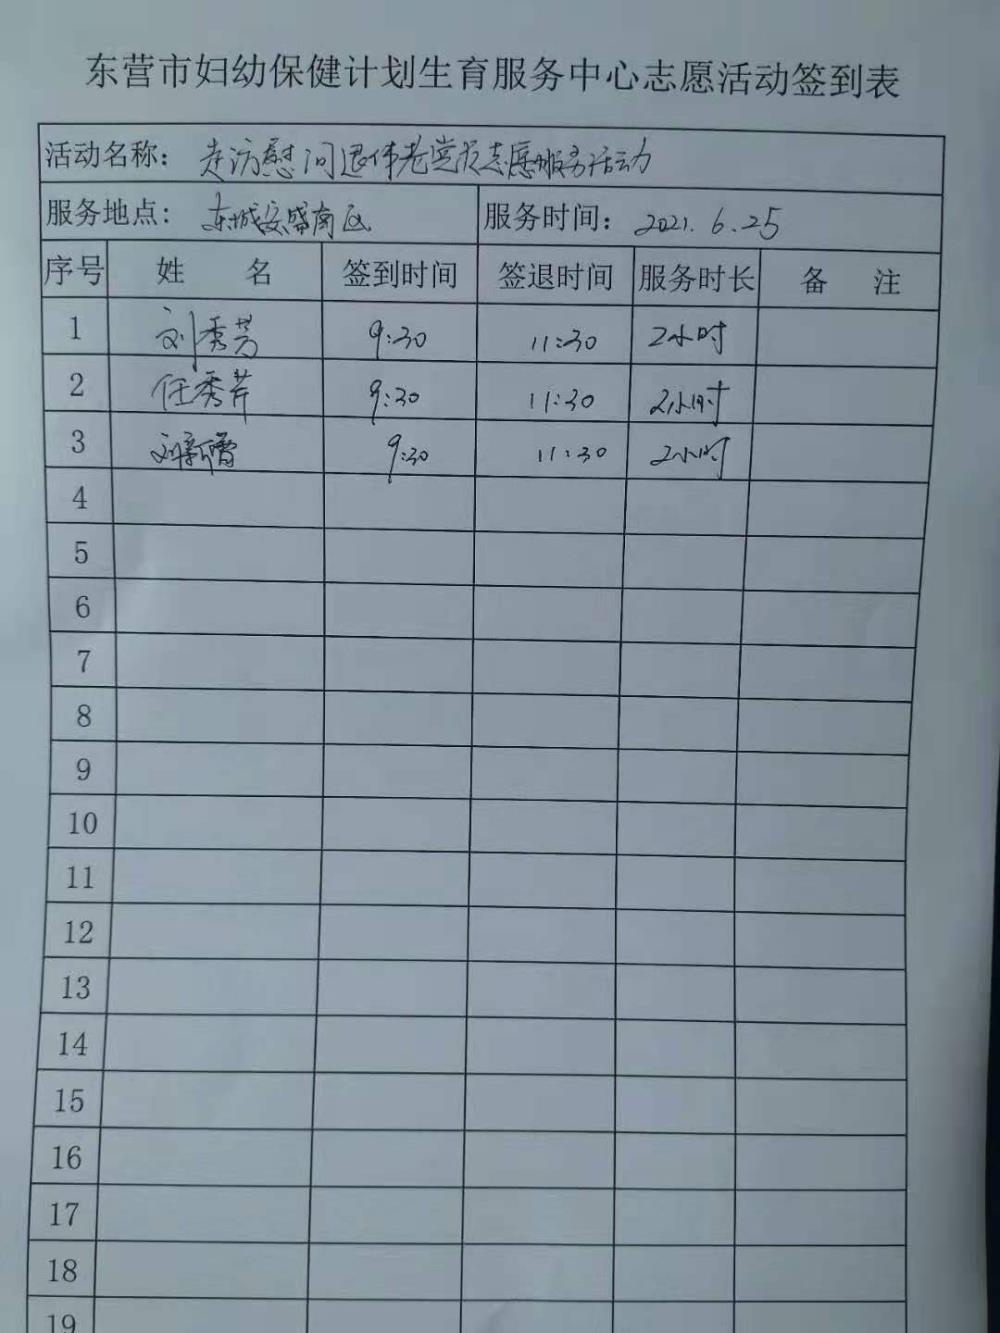 东营市妇幼保健计划生育服务中心志愿活动签到表
活动名称: 走访慰问退休老党员志愿服务活动
服务地点: 东城安盛南区 服务时间: 2021.6.25
序号 姓 名 签到时间 签退时间 服务时长 备 注
1 刘秀芳 9:30 11:30 2小时
2 任秀芹 9:30 11:30 2小时
3 刘新 9:30 11:30 2小时
4
5
6
7
8
9
10
11
12
13
14
15
16
17
18
19